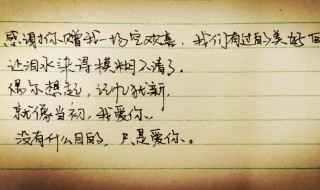 感谢你赠我一场空欢喜，我们有过的美好回
还泪水染得模糊不清了。
偶尔想起，记忆犹新，
就像当初，我爱你..
没有什么目的，只是爱你。